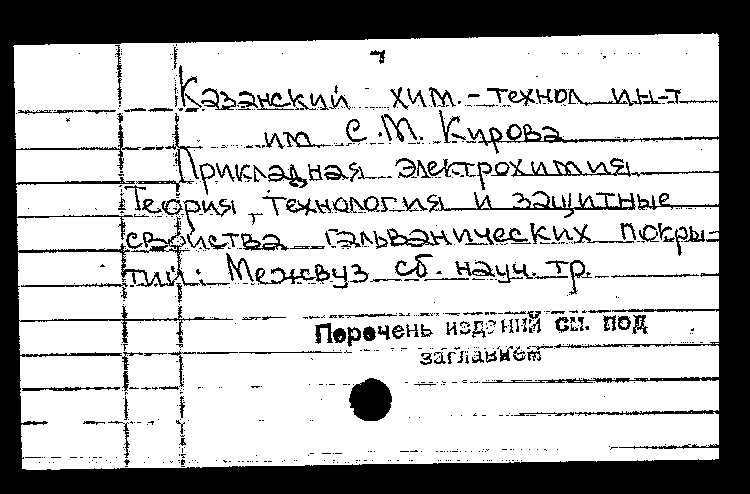 Казанский хим.-технол ин-т
им С.М. Кирова
Прикладная электрохимия
Теория, технология и защитные
свойства гальванических покры-
тий: Межвуз сб. науч. тр.
Перечень изданий см. под
заглавием